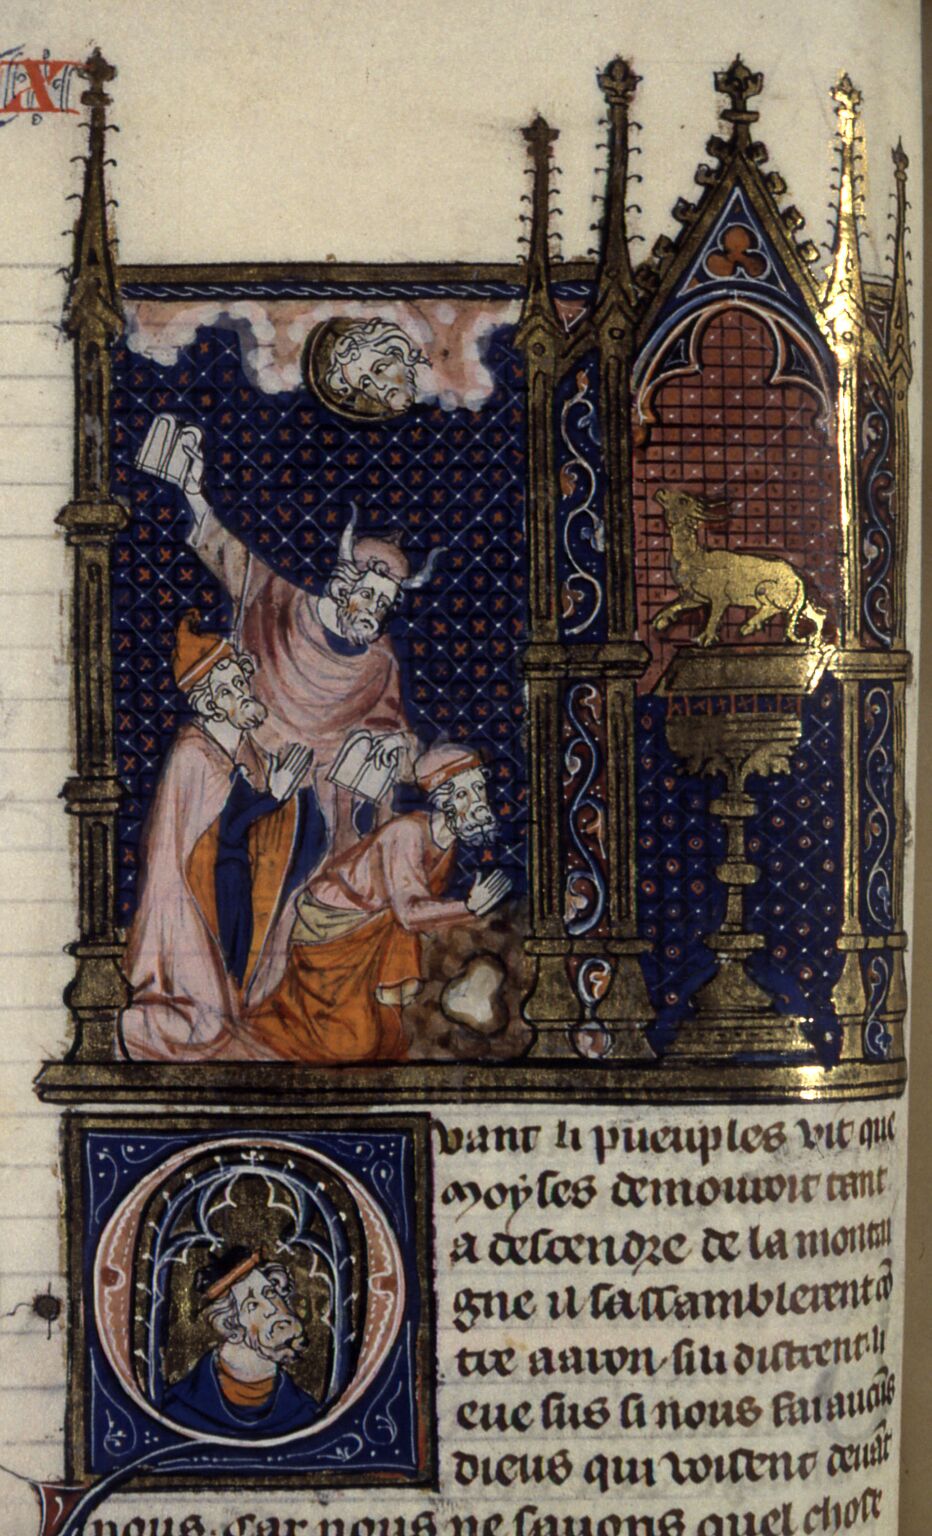 X
Quant li pueuples vit que
moyses demouroit tant
a descendre de la montai
gne il sassamblerent cō
tre aaron si li distrent li
eue sus si nous fai aucūs
dieus qui voisent deuāt
nous. car nous ne sauons quel chose